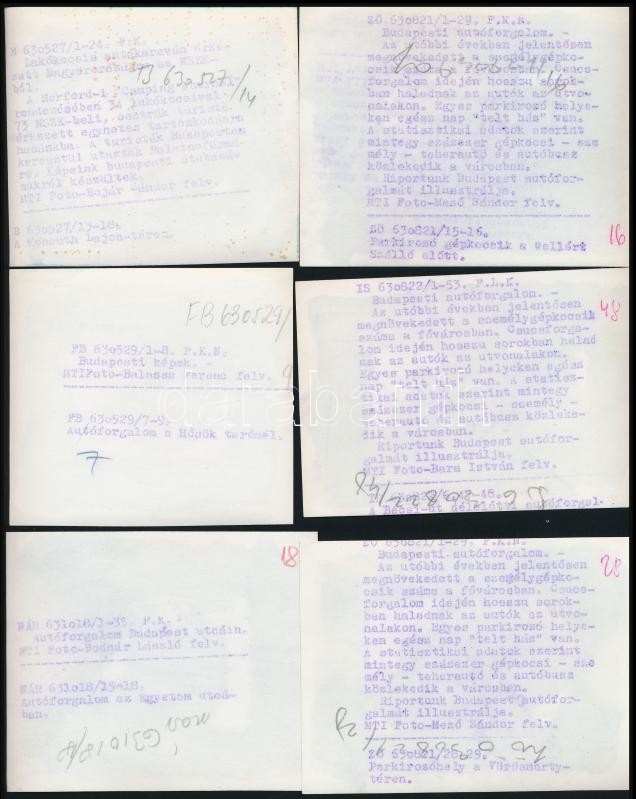 B 630527/1-24. F.K.
Lakókocsis autókaraván érke-
zett Magyarországra az NSZK-
ból.
A Herford-i Camping
rendezésében 34 lakókocsival
73 NSZK-beli, osztrák turista
érkezett egyhetes tartózkodásra
hazánkba. A turisták Budapesten
keresztül utaztak Balatonfüred-
re. Képeink budapesti
készültek.
MTI Foto-Bojár Sándor felv.
B 630527/13-18.
A Kossuth Lajos-téren.
FB 630527
/14
ZŐ 630821/1-29. F.K.N.
Budapesti autóforgalom. -
Az utóbbi években jelentősen
megnövekedett a személygépko-
csik száma a fővárosban. Csucs-
forgalom idején hosszu sorok-
ban haladnak az autók az utvo-
nalakon. Egyes parkirozó helye-
ken egész nap "telt ház" van.
A statisztikai adatok szerint
mintegy százezer gépkocsi - sze
mély - teherautó és autóbusz
közlekedik a városban.
Riportunk Budapest autófor-
galmát illusztrálja.
MTI Foto-Mező Sándor felv.
ZŐ 630821/15-16.
Parkirozó gépkocsik a Gellért
Szálló előtt.
16
FB 630529/
9
FB 630529/1-8. F.K.N.
Budapesti képek. -
MTI Foto-Balassa Ferenc felv.
FB 630529/7-9.
Autóforgalom a Hősök terénél.
7
IS 630822/1-53. F.L.K.
Budapesti autóforgalom. -
Az utóbbi években jelentősen
megnövekedett a személygépkocsik
száma a fővárosban. Csucsforga-
lom idején hosszu sorokban halad
nak az autók az utvonalakon.
Egyes parkirozó helyeken egész
nap "telt ház" van. A statisz-
tikai adatok szerint mintegy
százezer gépkocsi - személy -
teherautó és autóbusz közleke-
dik a városban.
Riportunk Budapest autófor-
galmát illusztrálja.
MTI Foto-Bara István felv.
A Bécsi-ut délelőtti autóforgal-
48
18
NÁR 631018/1-35. F.K.
Autóforgalom Budapest utcáin.
MTI Foto-Bodnár László felv.
NÁR 631018/15-18.
Autóforgalom az Egyetem utcá-
ban.
631018/18
ZŐ 630821/1-29. F.K.N.
Budapesti autóforgalom. -
Az utóbbi években jelentősen
megnövekedett a személygépko-
csik száma a fővárosban. Csucs-
forgalom idején hosszu sorok-
ban haladnak az autók az utvo-
nalakon. Egyes parkirozó helye-
ken egész nap "telt ház" van.
A statisztikai adatok szerint
mintegy százezer gépkocsi - sze
mély - teherautó és autóbusz
közlekedik a városban.
Riportunk Budapest autófor-
galmát illusztrálja.
MTI Foto-Mező Sándor felv.
ZŐ 630821/28-29.
Parkirozóhely a Vörösmarty-
téren.
28
darabanth